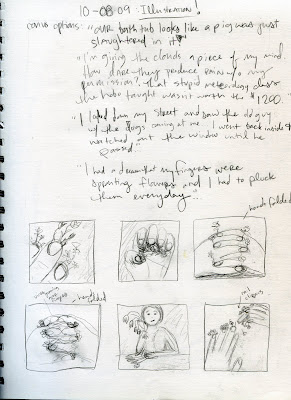 10-08-09 : Illustration!
options: "our bath tub looks like a pig was just
slaughtered in it"
"I'm giving the clouds a piece of my mind.
How dare they produce rain w/o my
permission? That stupid meteorology class
the hobo taught wasn't worth the $1200"
"I looked down my street and saw the old guy
w/ the dogs coming at me. I went back inside &
watched out the window until he
passed"
"I had a dream that my fingers were
sprouting flowers and I had to pluck
them everyday"...
hands folded
hands folded